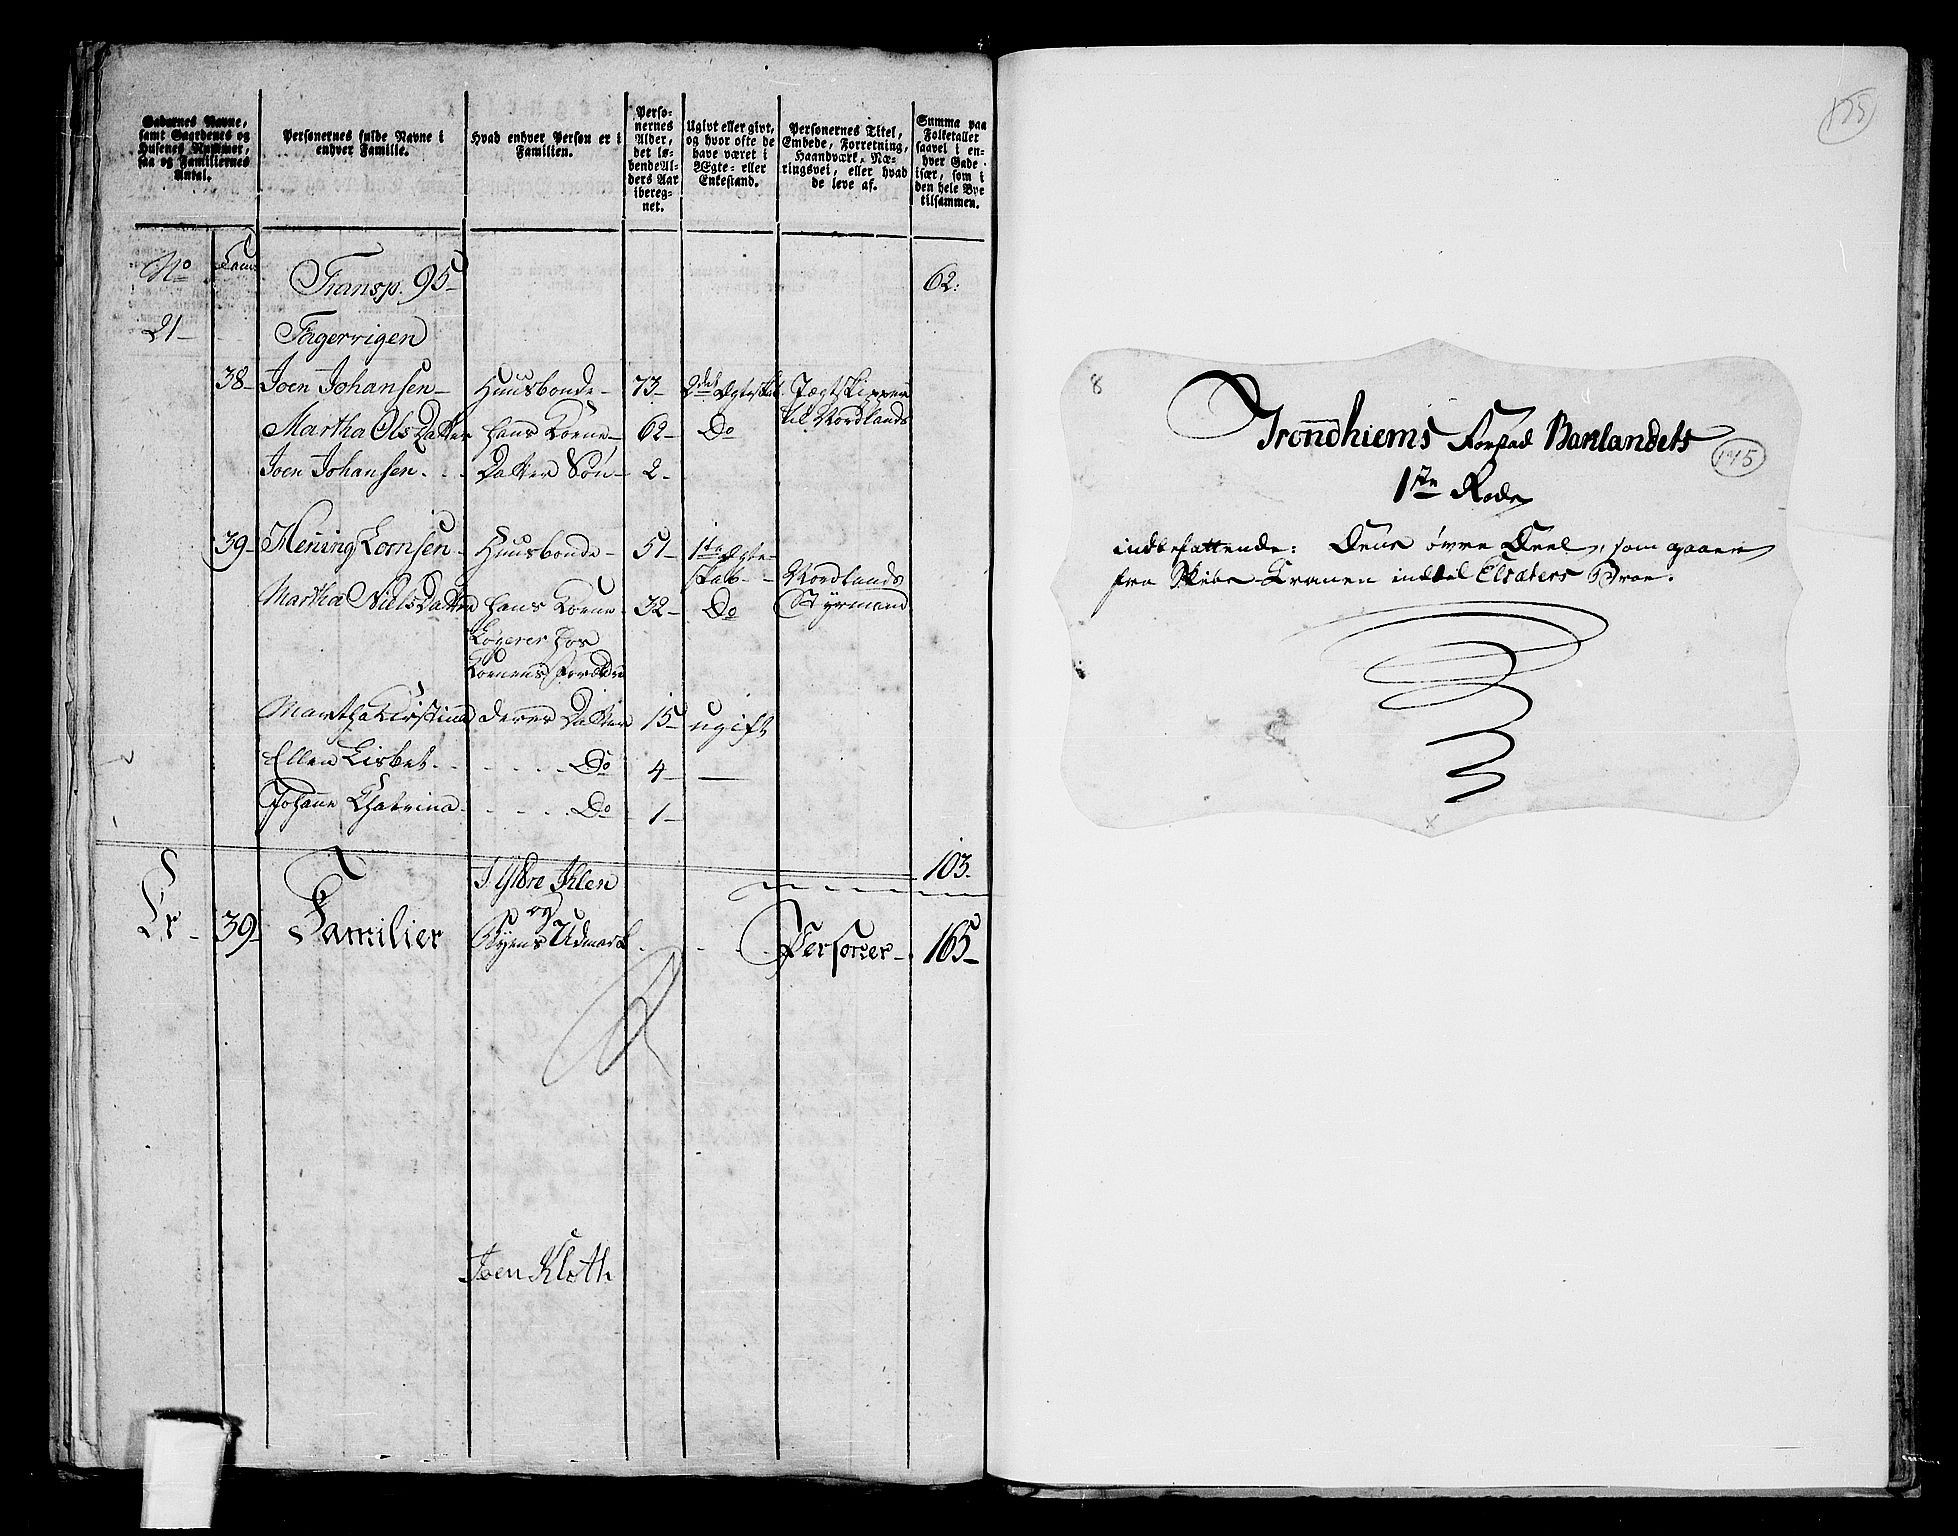 Gadernes Navne, samt Gaardenes og Husenes Nummer, saa og Familiernes Antal.
Personernes fulde Navne i enhver Familie.
Hvad enhver Person er i Familien.
Personernes Alder, det løbende Alders Aar iberegnet.
Ugivt eller givt, og hvor ofte de have været i Ægte- eller Enkestand.
Personernes Titel, Embede, Forretning, Haandværk, Næringsvei, eller hvad de leve af.
Summa paa Folketallet saavel i enhver Gade især, som i den hele Bye tilsammen.
No Fam: Transp. 95- 62:
21- Fagervigen
38- Joen Johansen- Huusbonde- 73- 2det Ægteskab Jægtskipper
Martha Ols Datter hans Koene- 62- Do til Nordlands
Joen Johansen. Datter Søn- 2-
39- Hening Lornsen- Huusbonde- 51- 1ste Ægte-
skab- Nordlands
Martha Niels Datter hans Koene- 32- Do Styrmand
Logerer hos
Koenens Forældre
Martha Kirstina deres Datter 15- ugift
Ellen Lisbet- Do 4-
Johane Chatrina- Do 1-
103-
I Ydre Ihlen
og
Er- 39- Familier Byens Udmark Personer- 165-
Joen Kloth
155
8
Trondhiems Forstad Baklandets
145
1ste Rode
indbefattende: Dens øvre Deel, som gaaer
fra Skibs-Kranen indtil Elsæters Broe.
x